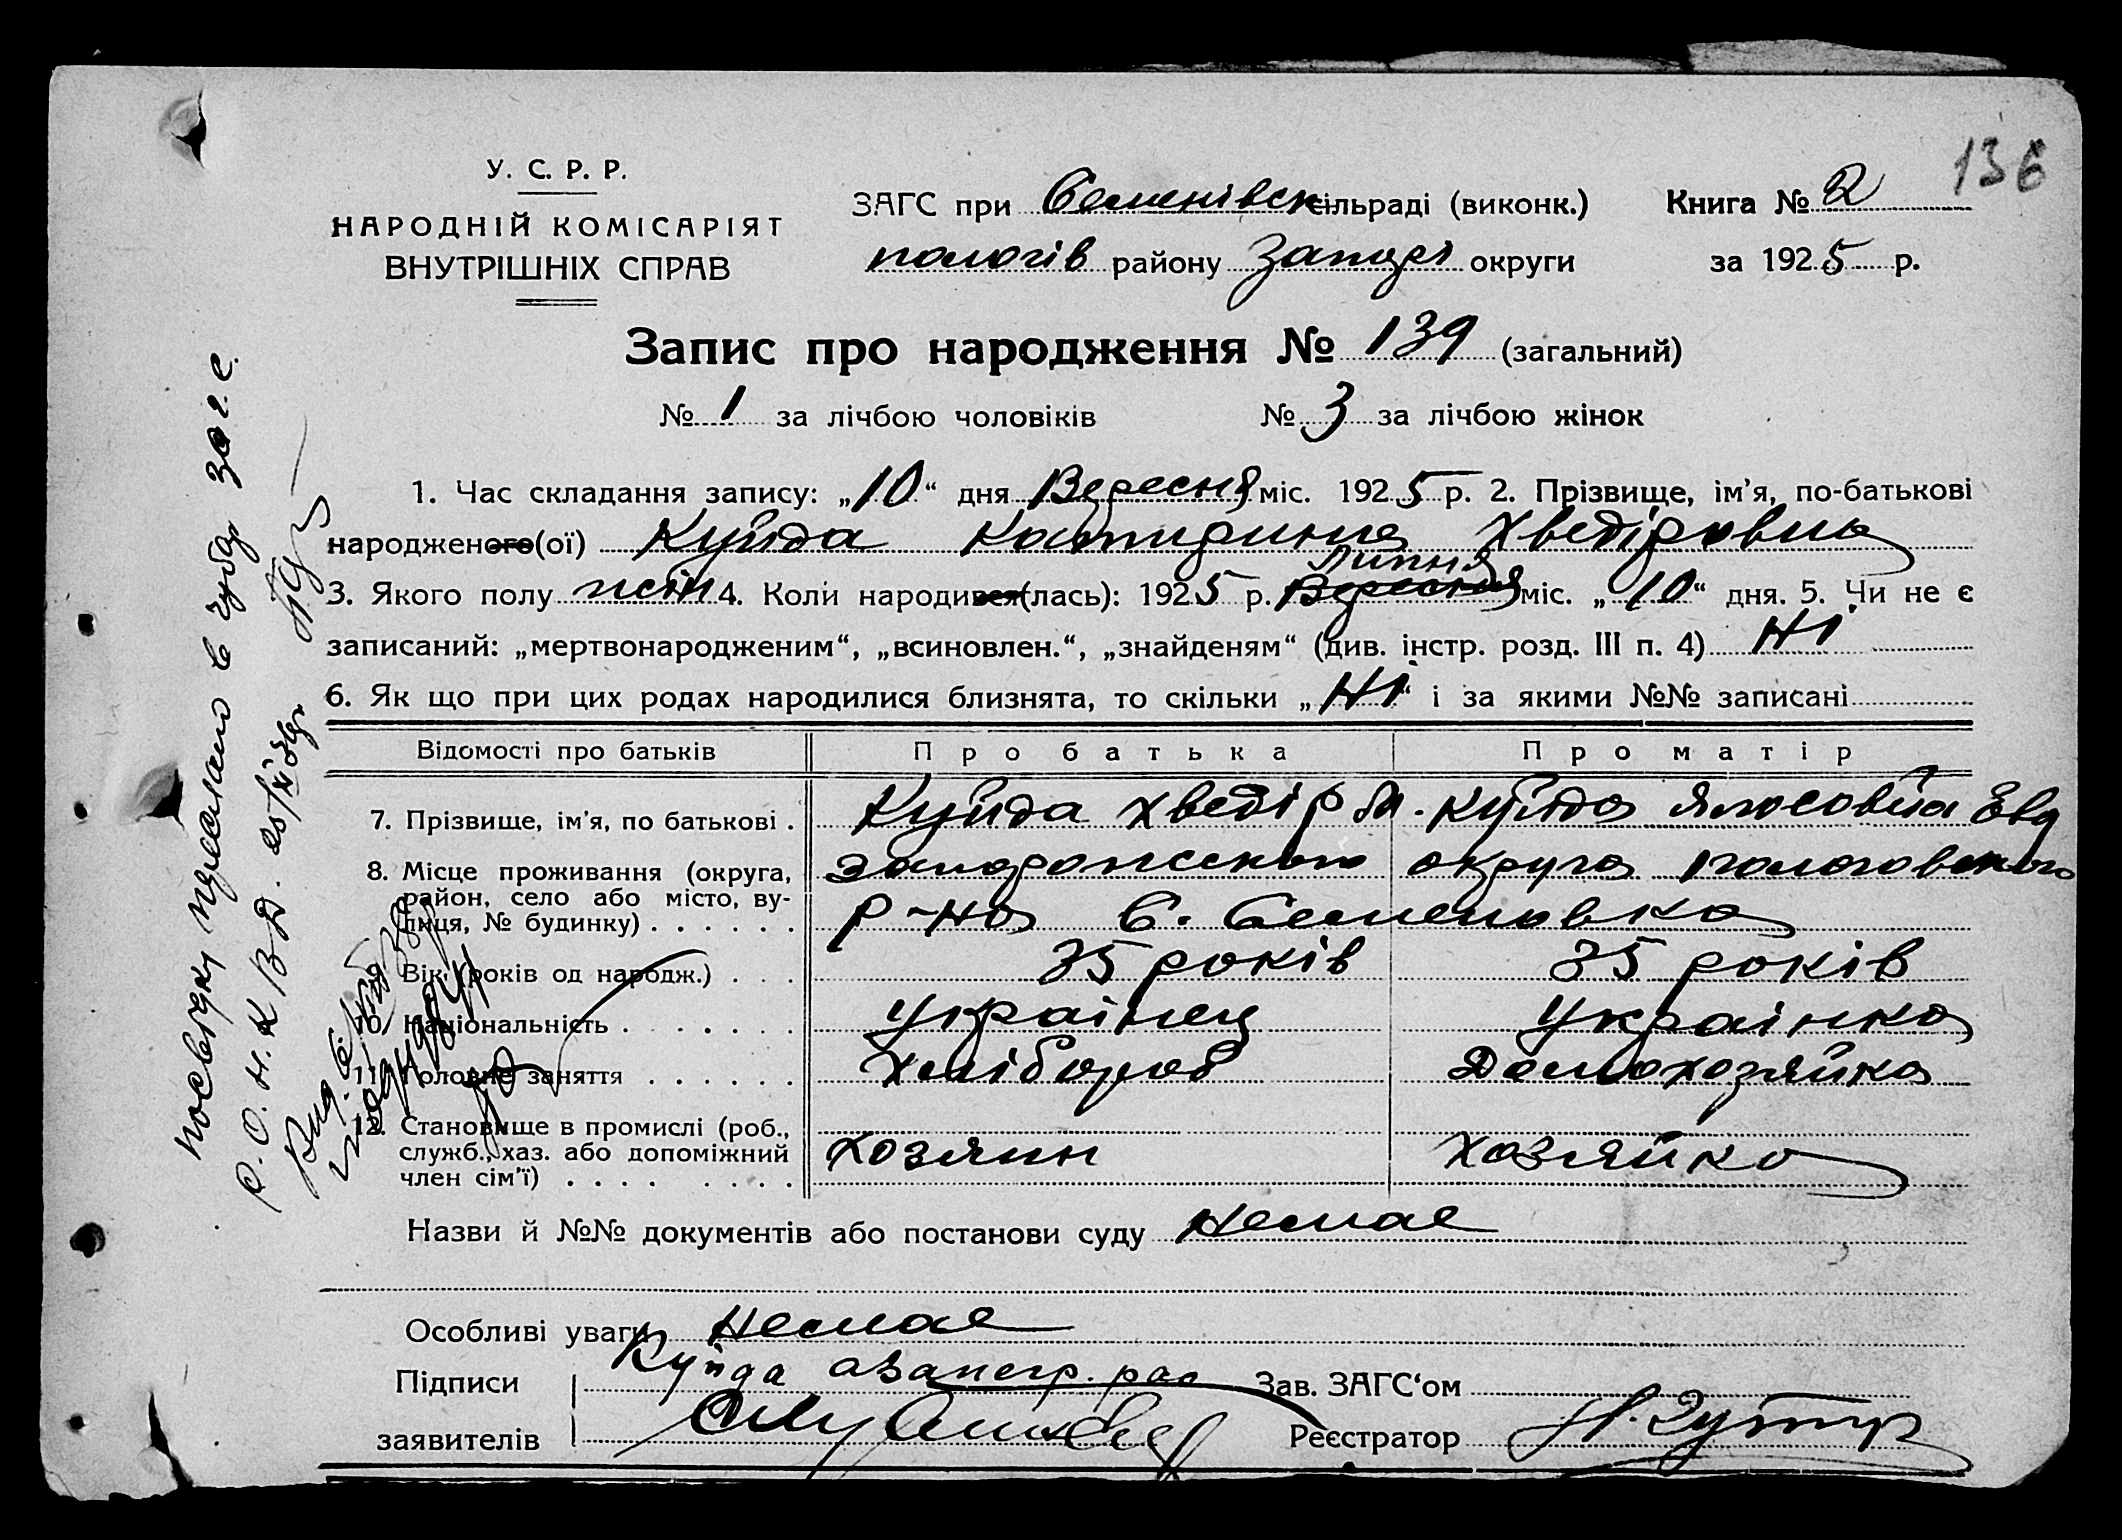 136
У. С. Р. Р.
НАРОДНІЙ КОМІСАРІЯТ
ВНУТРІШНІХ СПРАВ
ЗАГС при Семенівск сільраді (виконк.) Книга № 2
пологів району Запорі округи за 1925 р.
Запис про народження № 139 (загальний)
№ 1 за лічбою чоловіків № 3 за лічбою жінок
1. Час складання запису: „10“ дня Вересня міс. 1925 р. 2. Прізвище, ім’я, по-батькові
народженого(ої) Куйда Катирина Хведіровна
Липня
3. Якого полу жін 4. Коли народився(лась): 1925 р. Вересня міс. „10“ дня. 5. Чи не є
записаний: „мертвонародженим“, „всиновлен.“, „знайденям“ (див. інстр. розд. III п. 4) Ні
6. Як що при цих родах народилися близнята, то скільки „Ні“ і за якими №№ записані
Відомості про батьків Про батька Про матір
7. Прізвище, ім’я, по батькові . Куйда Хведір М. Куйда Явд
8. Місце проживання (округа, Запорожского округа пологовского
район, село або місто, ву-
лиця, № будинку) . . . . . . р-на С. Семеновка
Вік (років од народж.) . . . 35 років 35 років
10. Національність . . . . . . Українец Українка
11. Головне заняття . . . . . . Хлібороб Домохозяйка
12. Становище в промислі (роб.,
служб., хаз. або допоміжний Хозяин Хозяйка
член сім’ї) . . . . . . . .
Назви й №№ документів або постанови суду Немае
Особливі уваги Немае
Підписи Куйда Зав. ЗАГС‘ом
заявителів Реєстратор
в 30 г. с.
Р. О. Н. К В Д.